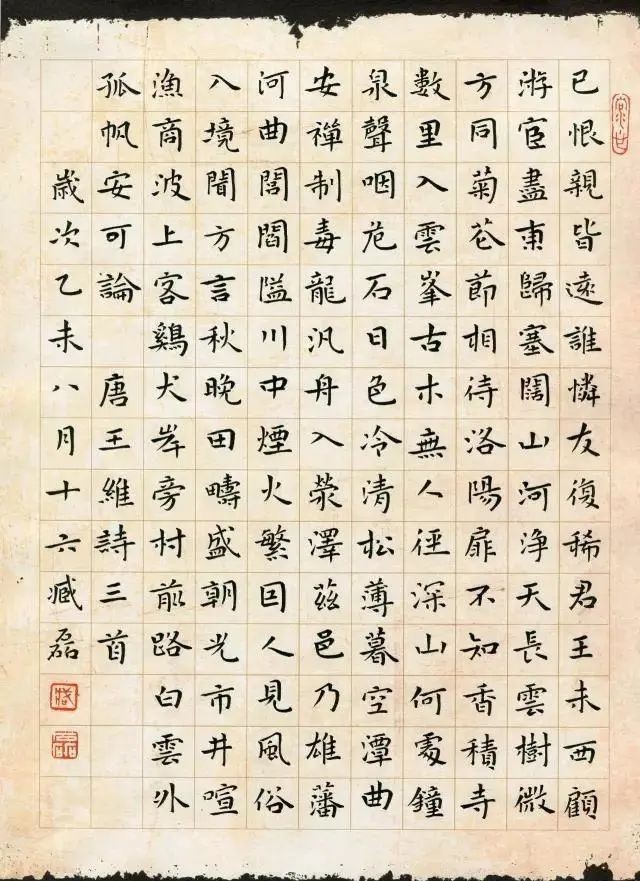 已恨親皆遠誰憐友復稀君王未西顧
游宦盡東歸塞闊山河淨天長雲樹微
方同菊花節相待洛陽扉不知香積寺
數里入雲峯古木無人徑深山何處鐘
泉聲咽危石日色冷清松薄暮空潭曲
安禪制毒龍汎舟入滎澤茲邑乃雄藩
河曲閭閻隘川中煙火繁因人見風俗
入境聞方言秋晚田疇盛朝光市井喧
漁商波上客鷄犬岸旁村前路白雲外
孤帆安可論 唐王維詩三首
歲次乙未八月十六臧磊
臧
磊